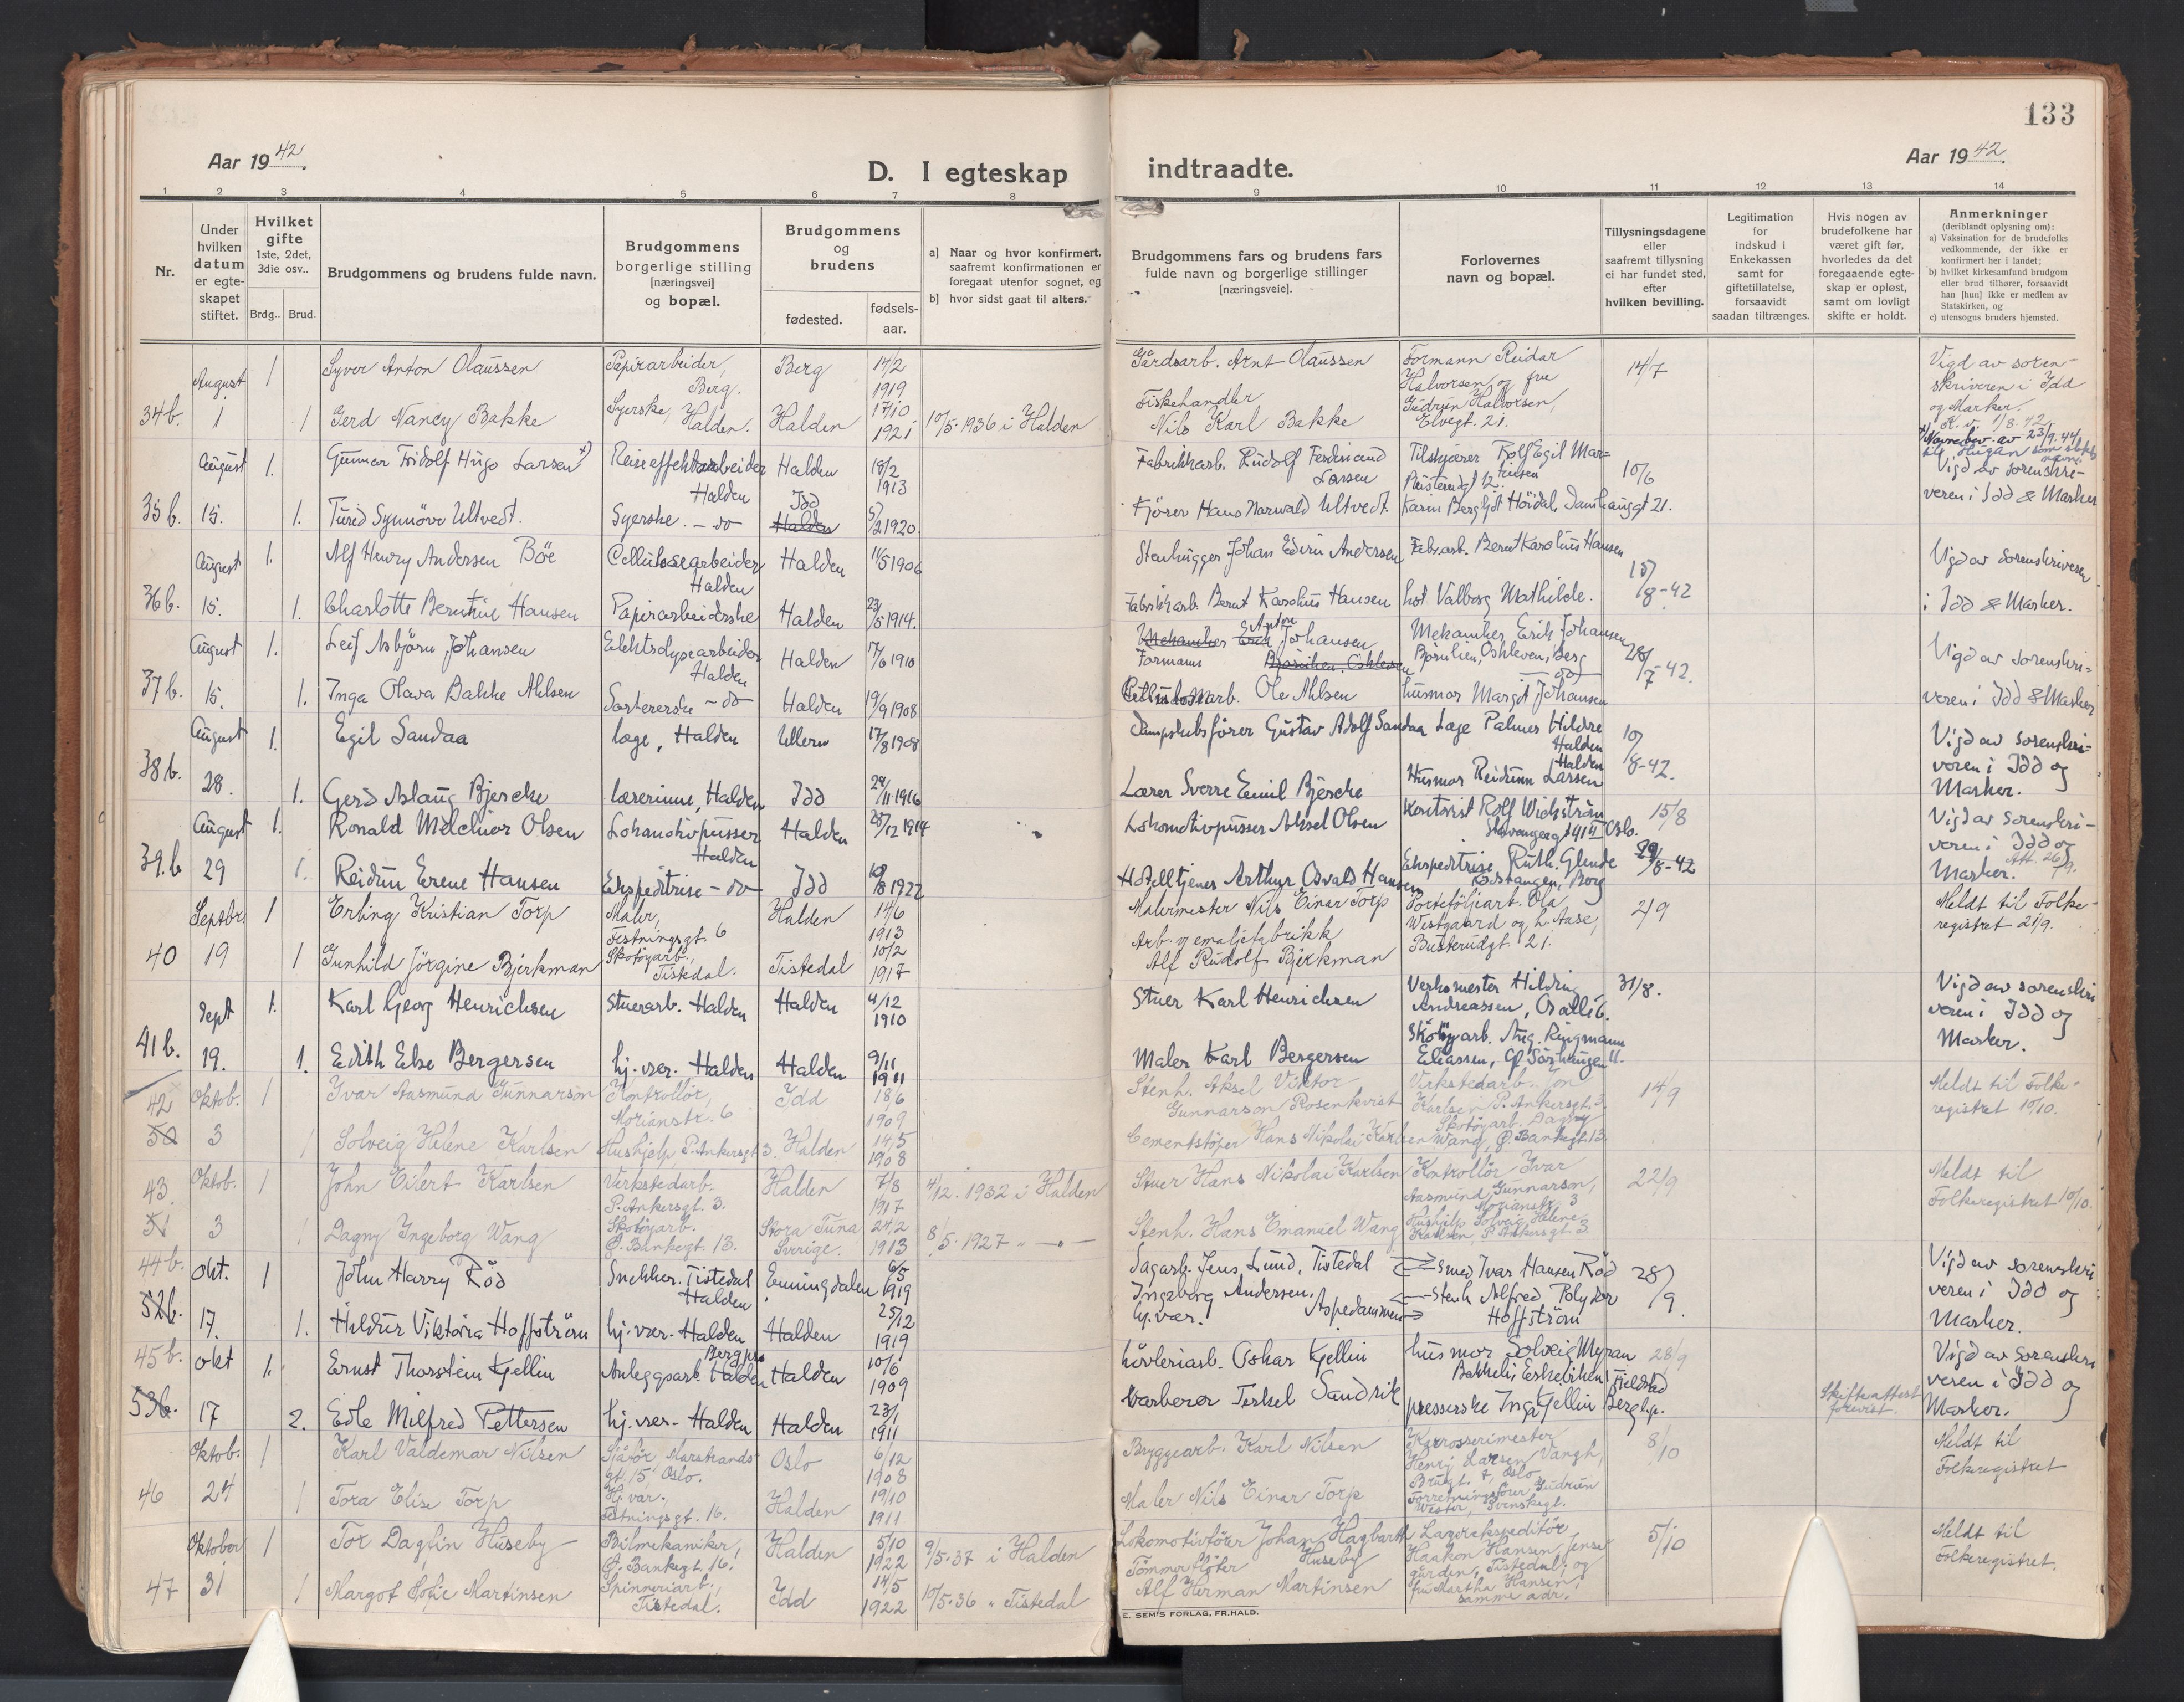 133
Aar 1942.
D. I egteskap indtraadte.
Aar 1942.
1 2 3 4 5 6 7 8 9 10 11 12 13 14
Nr.
Under hvilken datum er egteskapet stiftet.
Hvilket gifte 1ste, 2det, 3die osv..
Brdg.. Brud.
Brudgommens og brudens fulde navn.
Brudgommens borgerlige stilling [næringsvei] og bopæl.
Brudgommens og brudens
fødested.
fødsels-aar.
a] Naar og hvor konfirmert, saafremt konfirmationen er foregaat utenfor sognet, og
b] hvor sidst gaat til alters.
Brudgommens fars og brudens fars fulde navn og borgerlige stillinger [næringsveie].
Forlovernes navn og bopæl.
Tillysningsdagene eller saafremt tillysning ei har fundet sted, efter hvilken bevilling.
Legitimation for indskud i Enkekassen samt for giftetillatelse, forsaavidt saadan tiltrænges.
Hvis nogen av brudefolkene har været gift før, hvorledes da det foregaaende egteskap er opløst, samt om lovligt skifte er holdt.
Anmerkninger (deriblandt oplysning om):
a) Vaksination for de brudefolks vedkommende, der ikke er konfirmert her i landet;
b) hvilket kirkesamfund brudgom eller brud tilhører, forsaavidt han [hun] ikke er medlem av Statskirken, og
c) utensogns bruders hjemsted.
August 1 Syver Anton Olaussen Papirarbeider, Berg. Berg 14/2 1919 Gårdsarb. Arnt Olaussen Formann Reidar Halvorsen og fru 14/7 Vigd av sorenskriveren i Idd og Marker.
34b. 1 1 Gerd Nancy Bakke Syerske, Halden. Halden 17/10 1921 10/5-1936 i Halden Fiskehandler Nils Karl Bakke Gudrun Halvorsen, Elvegt. 21.
August 1. Gunnar Fridolf Hugo Larsen +) Reiseeffektarbeider Halden Halden 18/2 1913 Fabrikkarb. Rudolf Ferdinand Larsen Tilskjærer Rolf Egil 10/6 Vigd av sorenskriveren i Idd & Marker
35b. 15. 1. Turid Synnöve Ultvedt. Syerske - do Halden Idd 5/2 1920. Kjører Hans Narwald Ultvedt. Karin Bergljot Höidal,
August 1. Alf Henry Andersen Böe Cellulosearbeider Halden Halden 11/5 1906 Stenhugger Johan Edvin Andersen Fabr.arb. Bernt Karolius Hansen 15/8-42 Vigd av sorenskriveren i Idd & Marker.
36b. 15. 1. Charlotte Berntine Hansen Papirarbeiderske Halden 23/5 1914. Fabrikkarb. Bernt Karolius Hansen Valborg Mathilde.
August 1. Leif Asbjörn Johansen Elektrolysearbeider Halden Halden 17/6 1910 Mekaniker Erik Anton Johansen Formann Mekaniker Erik Johansen Berg 28/7-42. Vigd av sorenskriveren i Idd & Marker
37b. 15. 1. Inga Olava Bakke Ahlsen Sortererske - do Halden 19/9 1908 Ole Ahlsen husmor Margit Johansen
August 1. Egil Sandaa læge, Halden Ullern 17/8 1908 Dampskibsfører Gustav Adolf Sandaa Læge Palmer Hildre Halden 10/8-42. Vigd av sorenskriveren i Idd og Marker.
38b. 28. 1. Gerd Aslaug Bjercke lærerinne, Halden Idd 29/11 1916 Lærer Sverre Emil Bjercke Husmor Reidunn Larsen Halden
August 1. Ronald Melchior Olsen Lokomotivpusser Halden Halden 25/12 1914 Lokomotivpusser Aksel Olsen Kontorist Rolf Wickström Oslo. 15/8 Vigd av sorenskriveren i Idd og Marker.
39.b 29 1. Reidun Erene Hansen Ekspeditrise - do Idd 10/8 1922 Hotelltjener Arthur Osvald Hansen Ekspeditrise Ruth Glende 29/8-42
Septbr. 1 Erling Kristian Torp Maler, Festningsgt. 6 Halden 14/6 1913 Malermester Nils Einar Torp Portefôljearb. Ola Westgaard og h. Aase, Busterudgt. 21. 2/9 Meldt til Folkeregistret 21/9.
40 19 1 Gunhild Jörgine Bjerkman Skotöyarb., Tistedal. Tistedal 10/2 1917 Arb. v emaljefabrikk Alf Rudolf Bjerkman
Sept 1. Karl Georg Henrichsen Stuerarb. Halden Halden 4/12 1910 Stuer Karl Henrichsen Verksmester Hilding Andreassen, 31/8. Vigd av sorenskriveren i Idd og Marker.
41b. 19. 1. Edith Else Bergersen hj.vær. Halden Halden 9/11 1911 Maler Karl Bergersen Skotöyarb. Aug. Ringmann Eliassen,
42 50 Oktob. 1 Ivar Aasmund Gunnarson Kontrollör, Morianstr. 6 Idd 18/6 1909 Stenh. Aksel Viktor Gunnarson Rosenkvist Verkstedarb. Jon Karlsen P. Ankersgt. 3. 14/9 Meldt til Folkeregistret 10/10.
3 1 Solveig Helene Karlsen Hushjelp, P. Ankersgt 3. Halden 14/5 1908 Cementstöper Hans Nikolai Karlsen Skotöyarb. Dagny Wang, O. Banksgt. 13.
43 51 Oktob. 1 John Eilert Karlsen Verkstedarb. P. Ankersgt. 3. Halden 7/8 1917 4/12. 1932 i Halden Stuer Hans Nikolai Karlsen Kontrollör Ivar Aasmund Gunnarson, Morianstr. 3 22/9 Meldt til Folkeregistret 10/10.
3 1 Dagny Ingeborg Wang Skotöyarb. O. Banksgt. 13. Stora Tuna Sverige. 24/2 1913 8/5. 1927 " — " — Stenh. Hans Emanuel Wang Hushjelp Solveig Helene Karlsen, P. Ankersgt. 3.
44b. 52b. Okt. 1 John Harry Röd Snekker. Tistedal Halden Enningdalen 6/5 1919 Sagarb. Jens Lund, Tistedal Smed Ivar Hansen Röd 28/9. Vigd av sorenskriveren i Idd og Marker.
17. 1. Hildur Viktoria Hoffström hj.vær. Halden Halden 25/12 1919 Ingeborg Andersen, hj.vær. Aspedammen Stenh Alfred Polydor Hoffström
45b. 53b. Okt 1. Ernst Thorstein Kjellin Anleggsarb. Halden Halden 10/6 1909 hövleriarb. Oskar Kjellin husmor Solveig Myran 28/9 Vigd av sorenskriveren i Idd og Marker.
17 2. Edle Milfred Pettersen hj.vær. Halden Halden 23/1 1911 Varberer Terkel Sandvik presserske Inga Kjellin Skifteattest forevist.
Oktob. 1 Karl Valdemar Nilsen Sjåför, Marstrandsgt. 15, Oslo. Oslo 6/12 1908 Bryggearb. Karl Nilsen Karosserimester Henry Larsen Vangh, Oslo 8/10 Meldt til Folkeregistret
46 24 1 Tora Elise Torp Hj.vær. Festningsgt. 16. Halden 19/10 1911 Maler Nils Einar Torp Forretningsförer Gudrun Wester, Svenskegt.
Oktober 1 Tor Dagfin Huseby Bilmekaniker, O. Banksgt. 16. Halden 5/10 1922 9/5-37 i Halden Lokomotivförer Johan Hagbarth Huseby Lagerekspeditör Haakon Hansen, Jensegården, Tistedal, og 5/10 Meldt til Folkeregistret.
47 31 1 Margot Sofie Martinsen Spinneriarb., Tistedal. Idd 14/5 1922 10/5-36 " Tistedal Tömmerflöter Alf Herman Martinsen fru Martha Hansen, samme adr.
E. SEM'S FORLAG, FR.HALD.